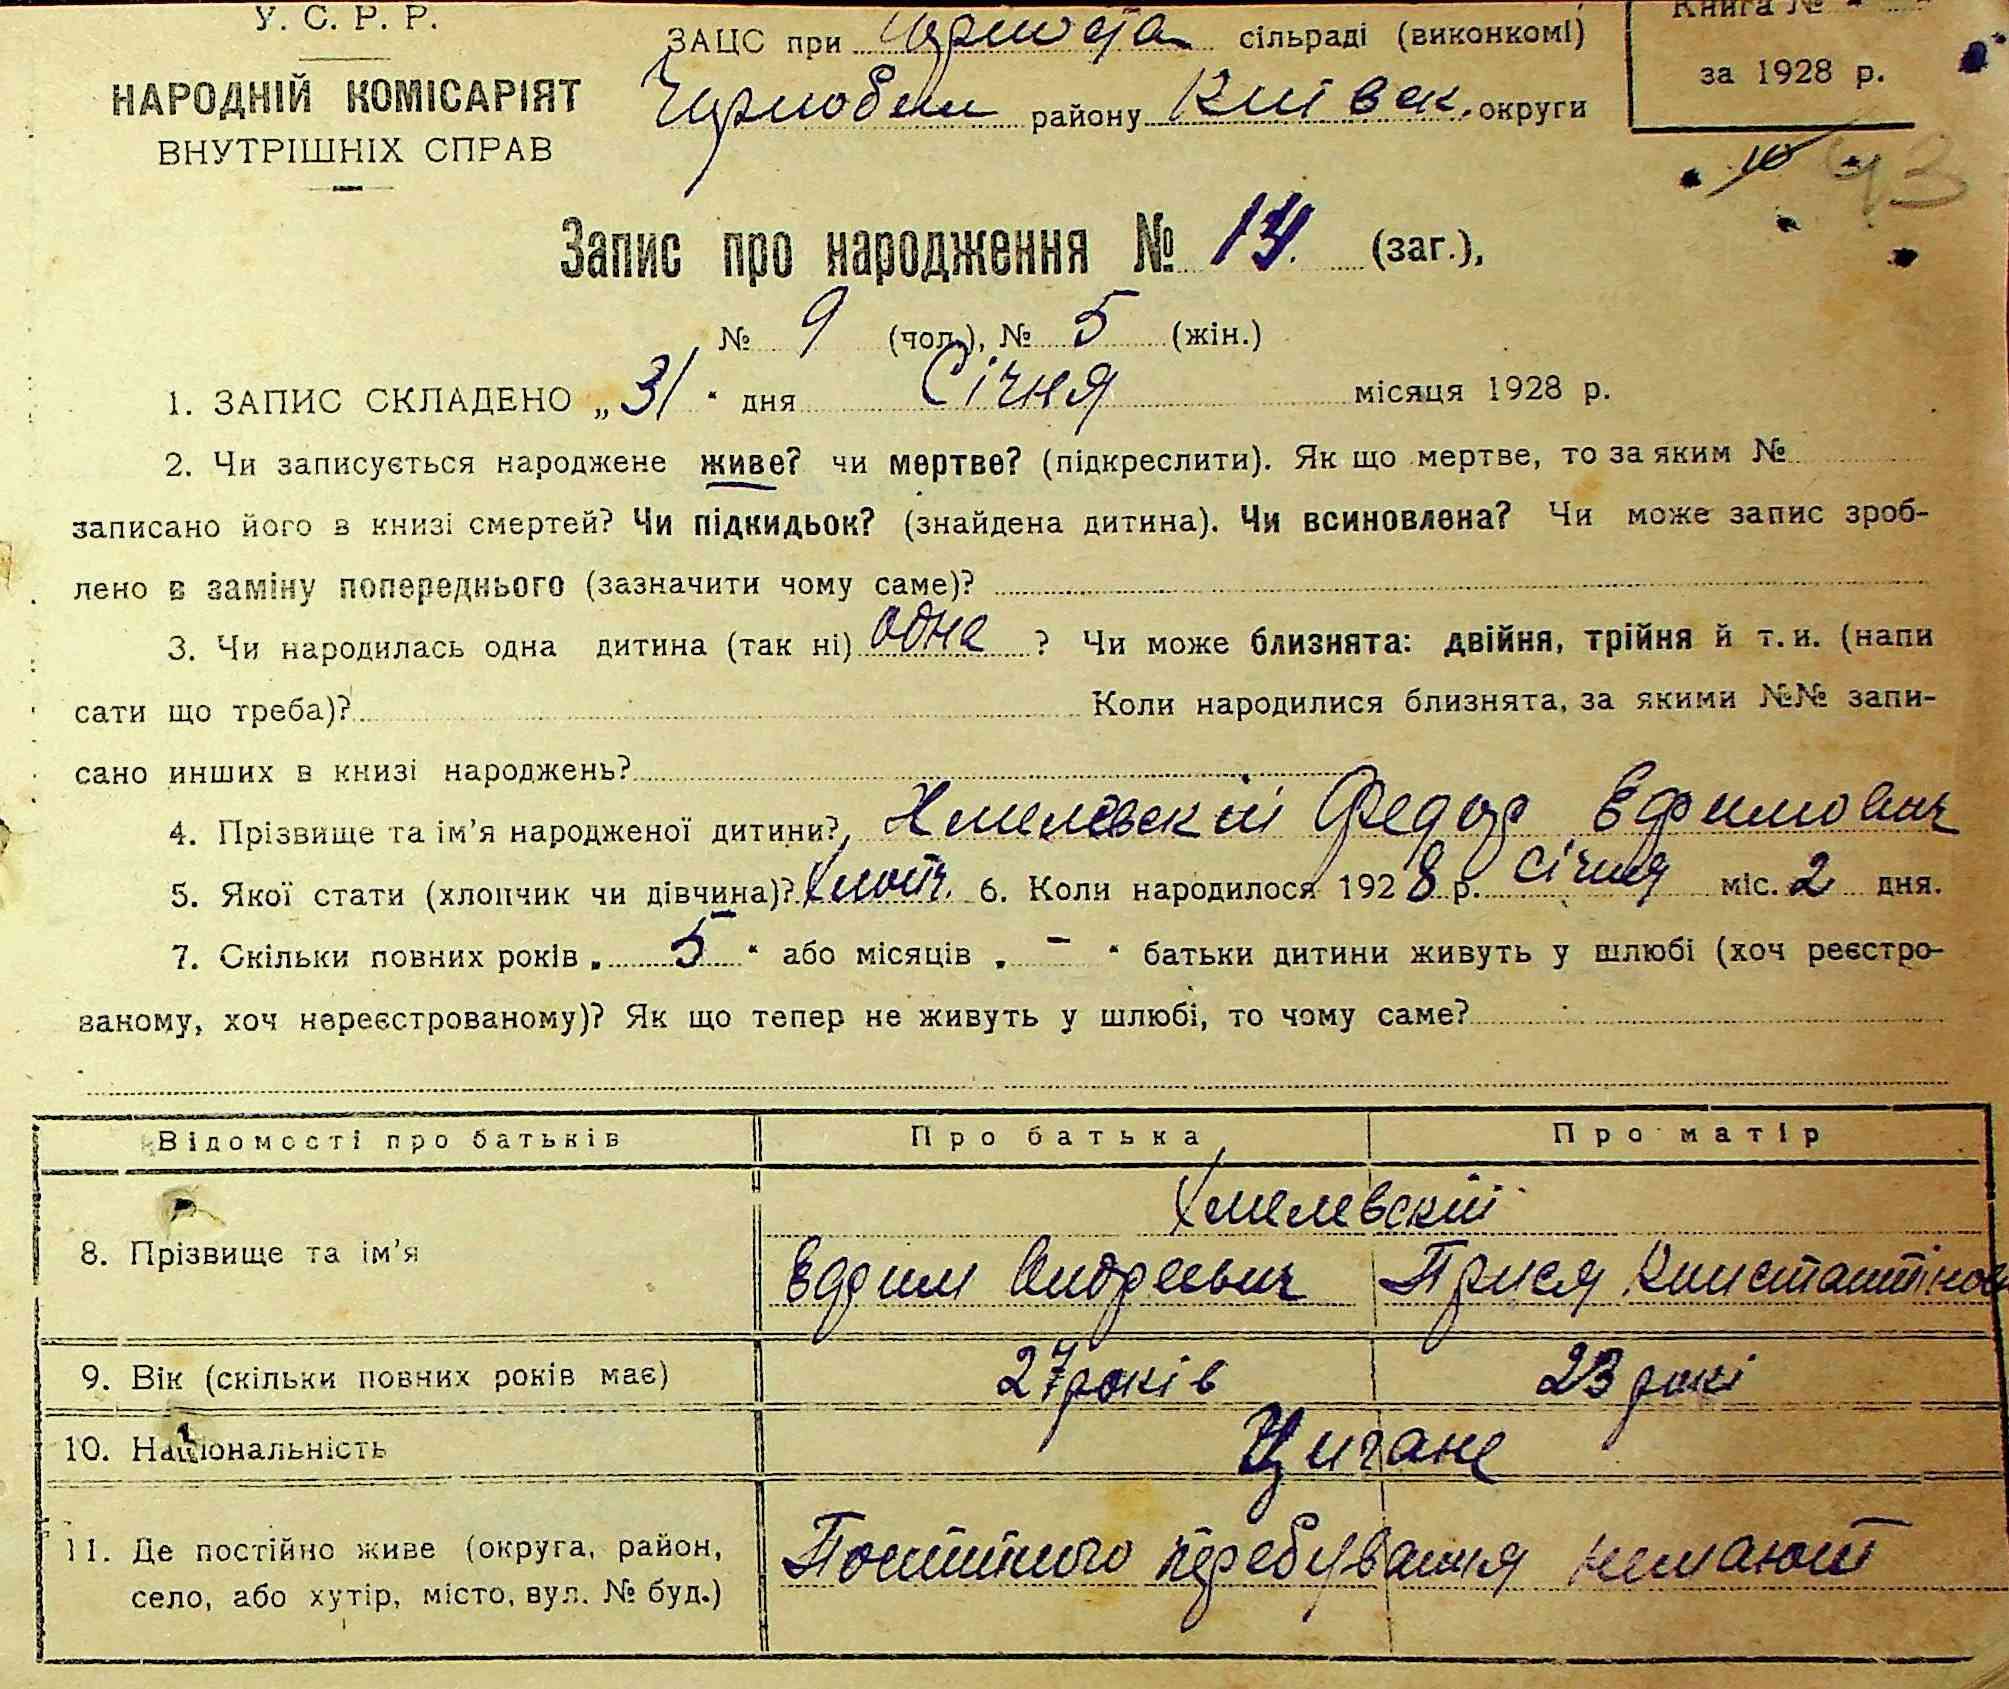 У. С. Р. Р.
НАРОДНІЙ КОМІСАРІЯТ
ВНУТРІШНІХ СПРАВ
ЗАЦС при сільраді (виконкомі)
Чорнобил району Київск. округи
Книга №
за 1928 р.
93
Запис про народження № 14. (заг.),
№ 9 (чол.), № 5 (жін.)
1. ЗАПИС СКЛАДЕНО „31“ дня Січня місяця 1928 р.
2. Чи записується народжене живе? чи мертве? (підкреслити). Як що мертве, то за яким №
записано його в книзі смертей? Чи підкидьок? (знайдена дитина). Чи всиновлена? Чи може запис зроб-
лено в заміну попереднього (зазначити чому саме)?
3. Чи народилась одна дитина (так ні) одна ? Чи може близнята: двійня, трійня й т. и. (напи
сати що треба)? Коли народилися близнята, за якими №№ запи-
сано инших в книзі народжень?
4. Прізвище та ім’я народженої дитини? Хмилевский Федор Ефимович
5. Якої стати (хлопчик чи дівчина)? Хлопч. 6. Коли народилося 1928 р. Січня міс. 2 дня.
7. Скільки повних років „ 5 “ або місяців „ – “ батьки дитини живуть у шлюбі (хоч реєстро-
ваному, хоч нереєстрованому)? Як що тепер не живуть у шлюбі, то чому саме?
Відомості про батьків Про батька Про матір
Хмилевскій
8. Прізвище та ім’я Ефим Андреевич Прися Констант
9. Вік (скільки повних років має) 27 років 23 рокі
10. Національність Цигане
11. Де постійно живе (округа, район,
село, або хутір, місто, вул. № буд.)
Постійного перебування немают